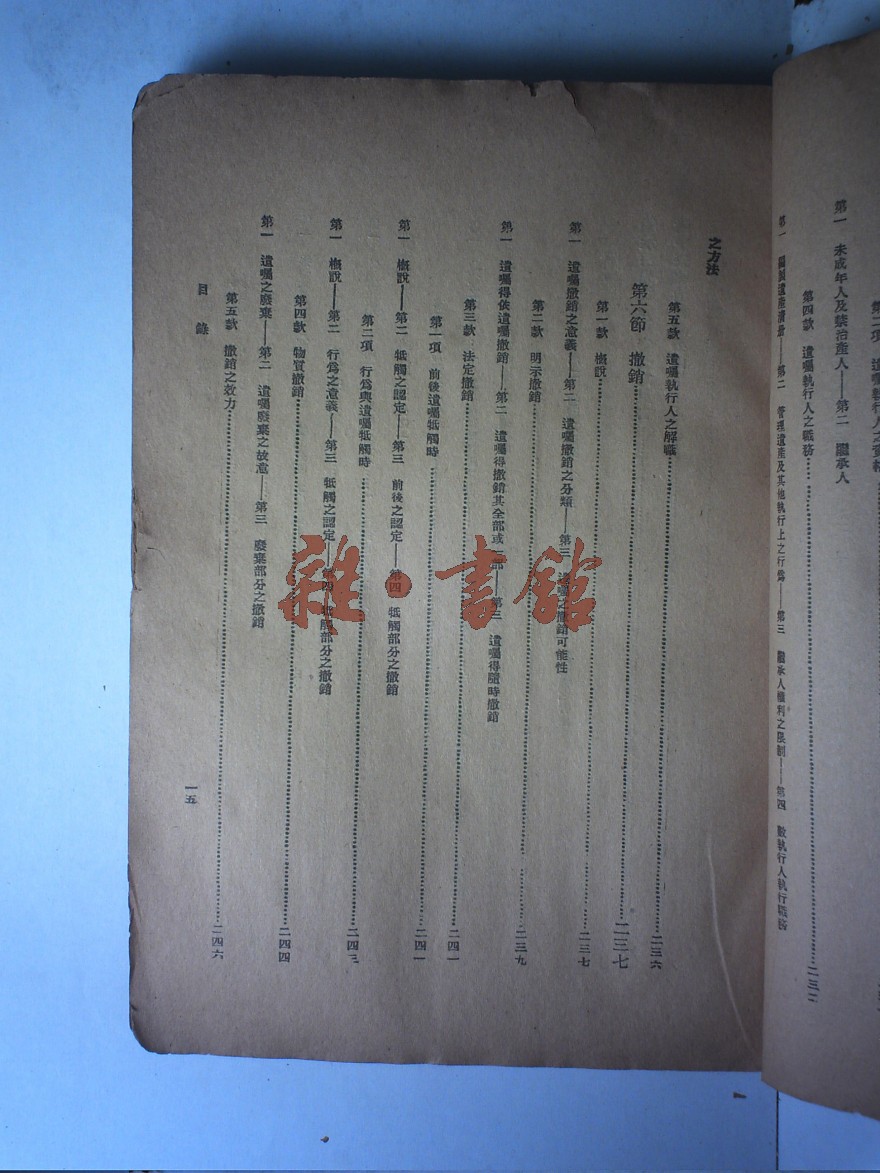 第一　未成年人及禁治產人——第二　繼承人
第四款　遺囑執行人之職務……二三二
第一　編製遺產清冊——第二　管理遺產及其他執行上之行為——第三　繼承人權利之限制——第四　數執行人執行職務
之方法
第五款　遺囑執行人之解職……二三六
第六節　撤銷……二三七
第一款　槪說……二三七
第一　遺囑撤銷之意義——第二　遺囑撤銷之分類——第三　遺囑之撤銷可能性
第二款　明示撤銷……二三九
第一　遺囑得依遺囑撤銷——第二　遺囑得撤銷其全部或一部——第三　遺囑得隨時撤銷
第三款　法定撤銷……二四一
第一項　前後遺囑牴觸時……二四一
第一　槪說——第二　牴觸之認定——第三　前後之認定——第四　牴觸部分之撤銷
第二項　行為與遺囑牴觸時……二四三
第一　槪說——第二　行為之意義——第三　牴觸之認定——第四　牴觸部分之撤銷
第四款　物質撤銷……二四四
第一　遺囑之廢棄——第二　遺囑廢棄之故意——第三　廢棄部分之撤銷
第五款　撤銷之效力……二四六
目錄
一五
雜·書館